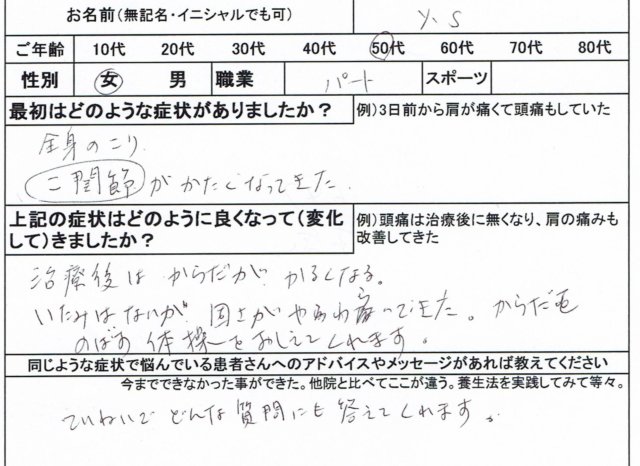 お名前(無記名・イニシャルでも可) Y.S
ご年齢 10代 20代 30代 40代 50代 60代 70代 80代
性別 女 男 職業 パート スポーツ
最初はどのような症状がありましたか? 例)3日前から肩が痛くて頭痛もしていた
全身のこり
こ関節がかたくなってきた.
上記の症状はどのように良くなって(変化 例)頭痛は治療後に無くなり、肩の痛みも
して)きましたか? 改善してきた
治療後は からだが かるくなる。
いたみはないが 固さがやわわ って来た。からだを
のばす 体操をおしえてくれます。
同じような症状で悩んでいる患者さんへのアドバイスやメッセージがあれば教えてください
今までできなかった事ができた。他院と比べてここが違う。養生法を実践してみて等々。
ていねいで どんな質問にも 答えてくれます。